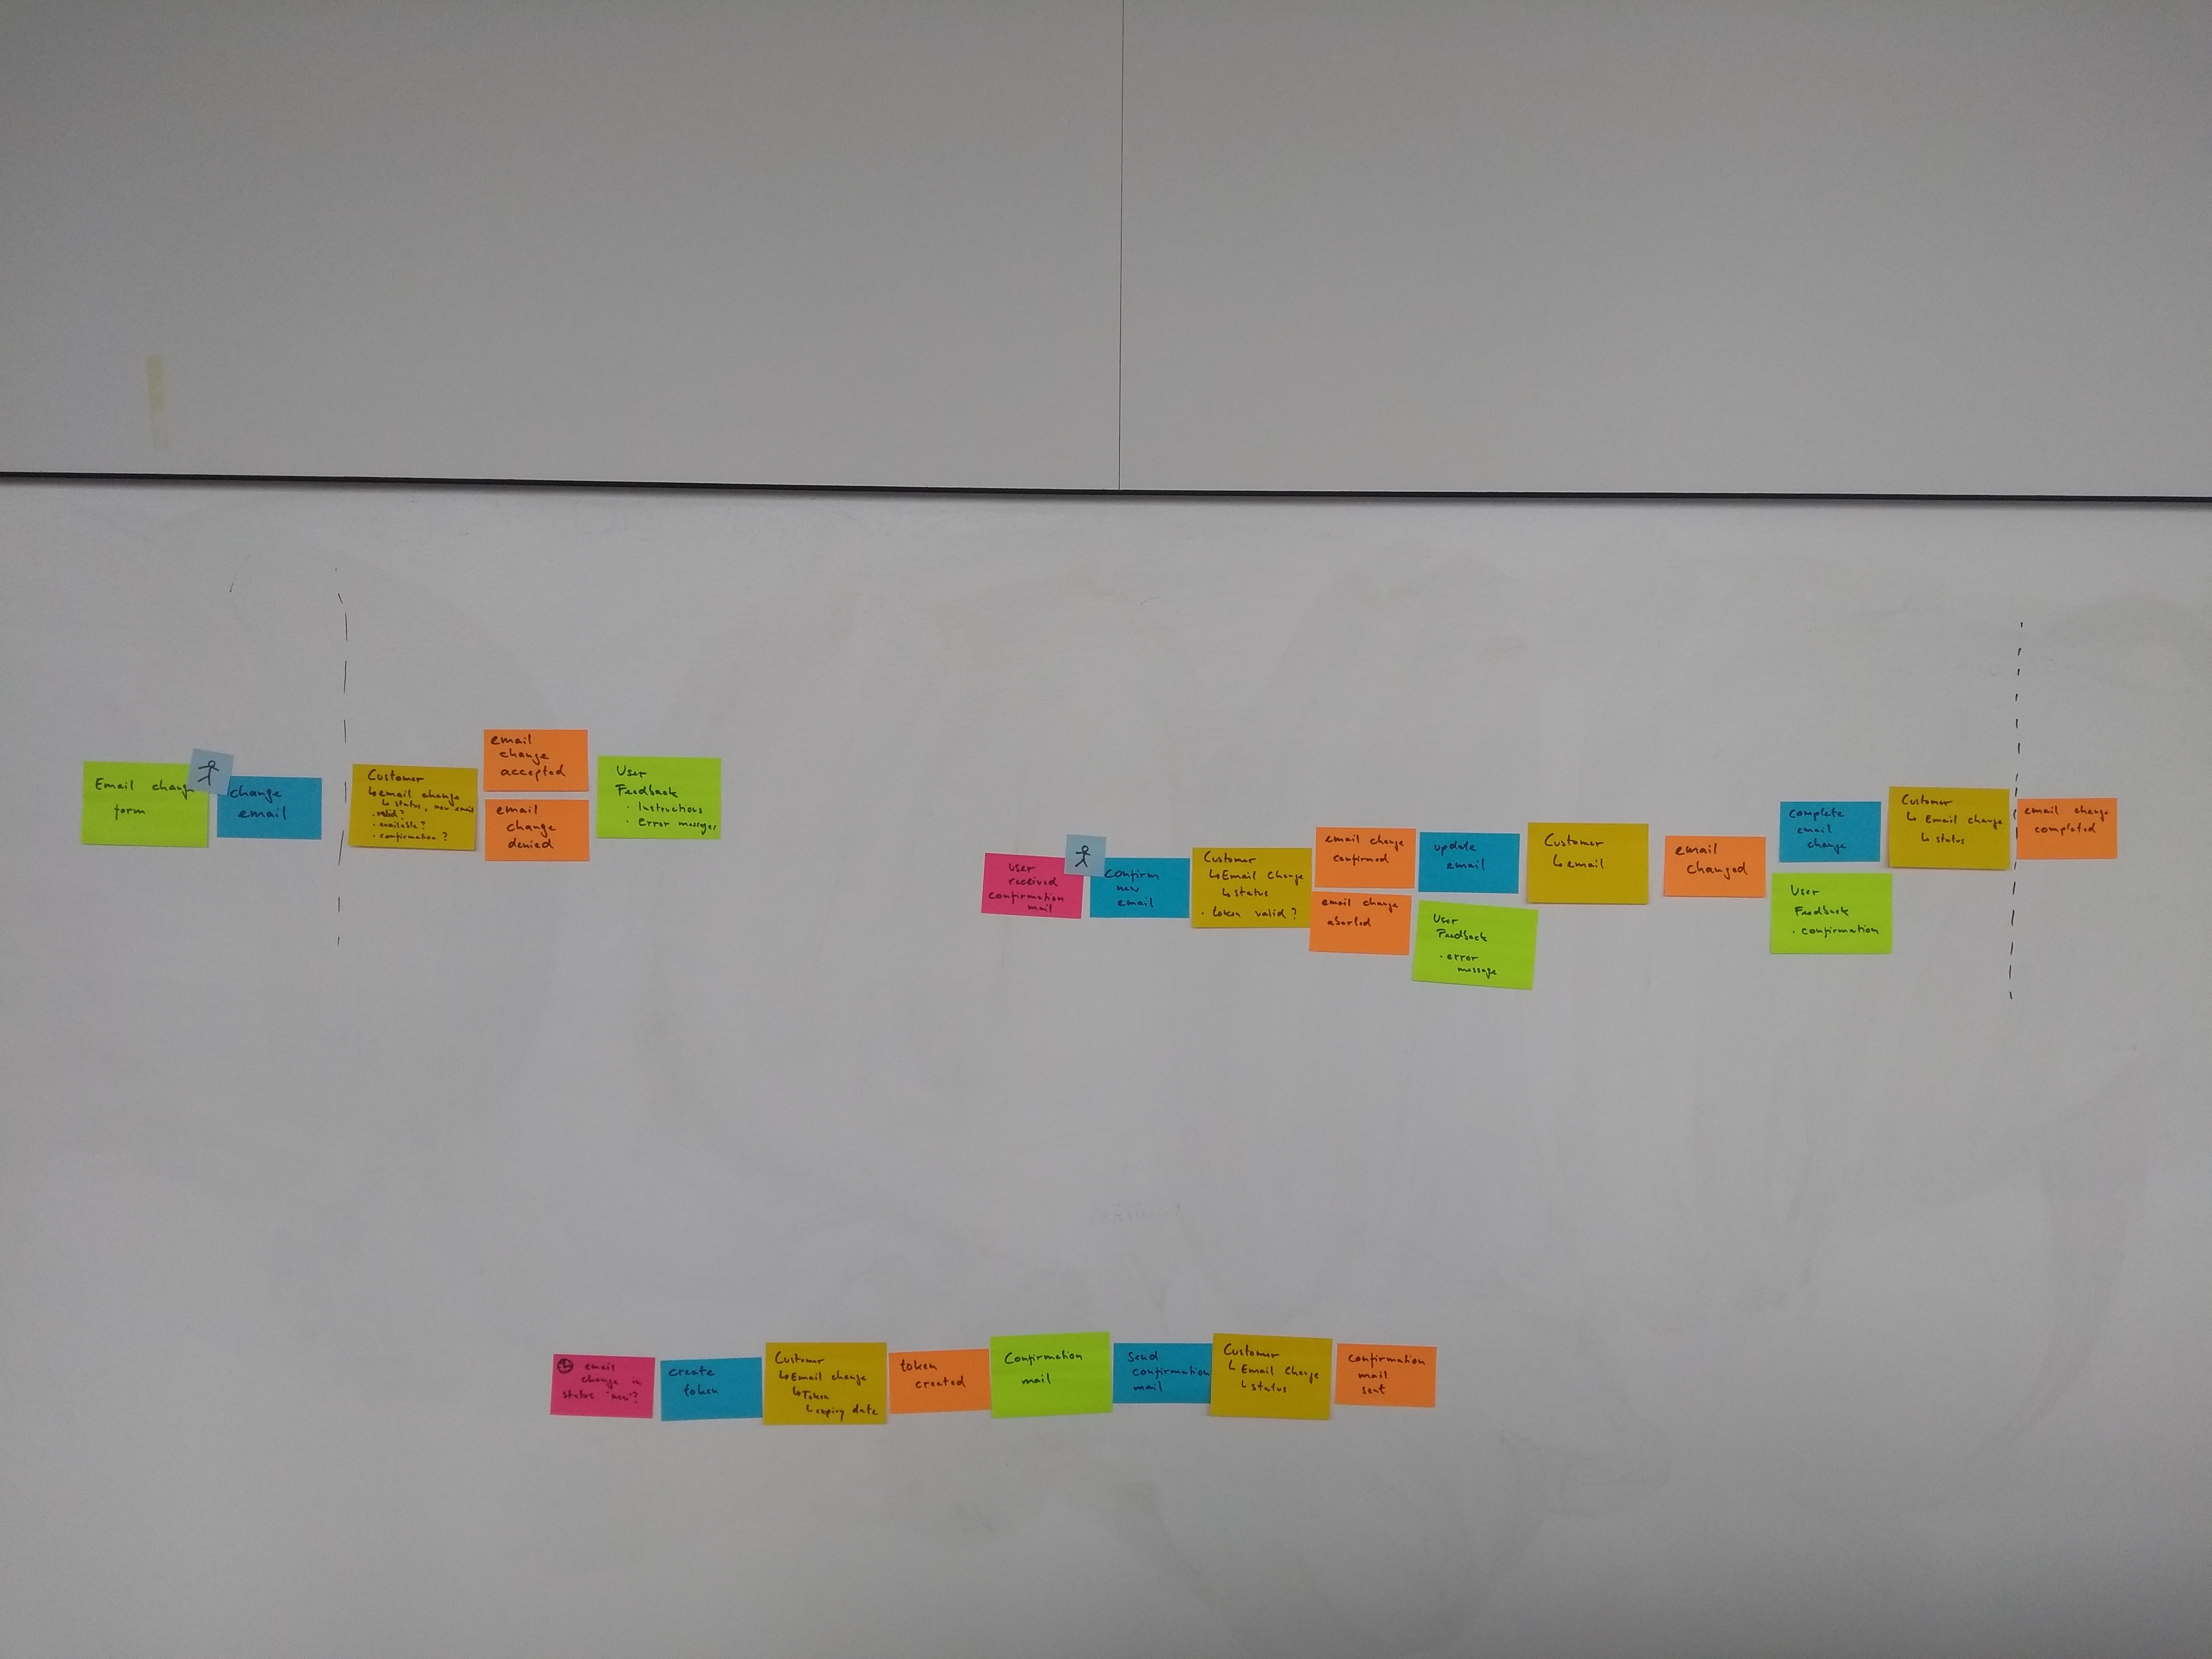 Email change
form
change
email
Customer
↳ email change
↳ status, new email
· valid?
· available?
· confirmation?
email
change
accepted
email
change
denied
User
Feedback
· Instructions
· Error messages
user
received
confirmation
mail
confirm
new
email
Customer
↳ Email Change
↳ status
· token valid?
email change
confirmed
email change
aborted
update
email
User
Feedback
· error
message
Customer
↳ email
email
changed
complete
email
change
User
Feedback
· confirmation
Customer
↳ Email change
↳ status
email change
completed
email
change in
status "new"?
create
token
Customer
↳ Email change
↳ Token
↳ expiry date
token
created
Confirmation
mail
Send
confirmation
mail
Customer
↳ Email Change
↳ status
confirmation
mail
sent